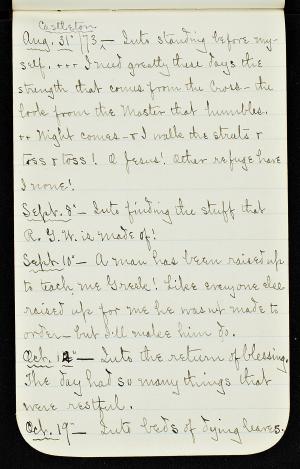 Castleton
Aug. 31st '73 ^ — Into standing before my-
self. +++ I need greatly these days the
strength that comes from the Cross – the
look from the Master that humbles.
++ Night comes – & I walk the streets &
toss & toss! O Jesus! Other refuge have
I none!
Sept. 8" – Into finding the stuff that
R. G. W. is made of!
Sept. 10" – A man has been raised up
to teach me Greek! Like everyone else
raised up for me he wasn't made to
order – but I'll make him do.
Oct. 12" – Into the return of blessing.
The day had so many things that
were restful.
Oct. 19" – Into beds of dying leaves.